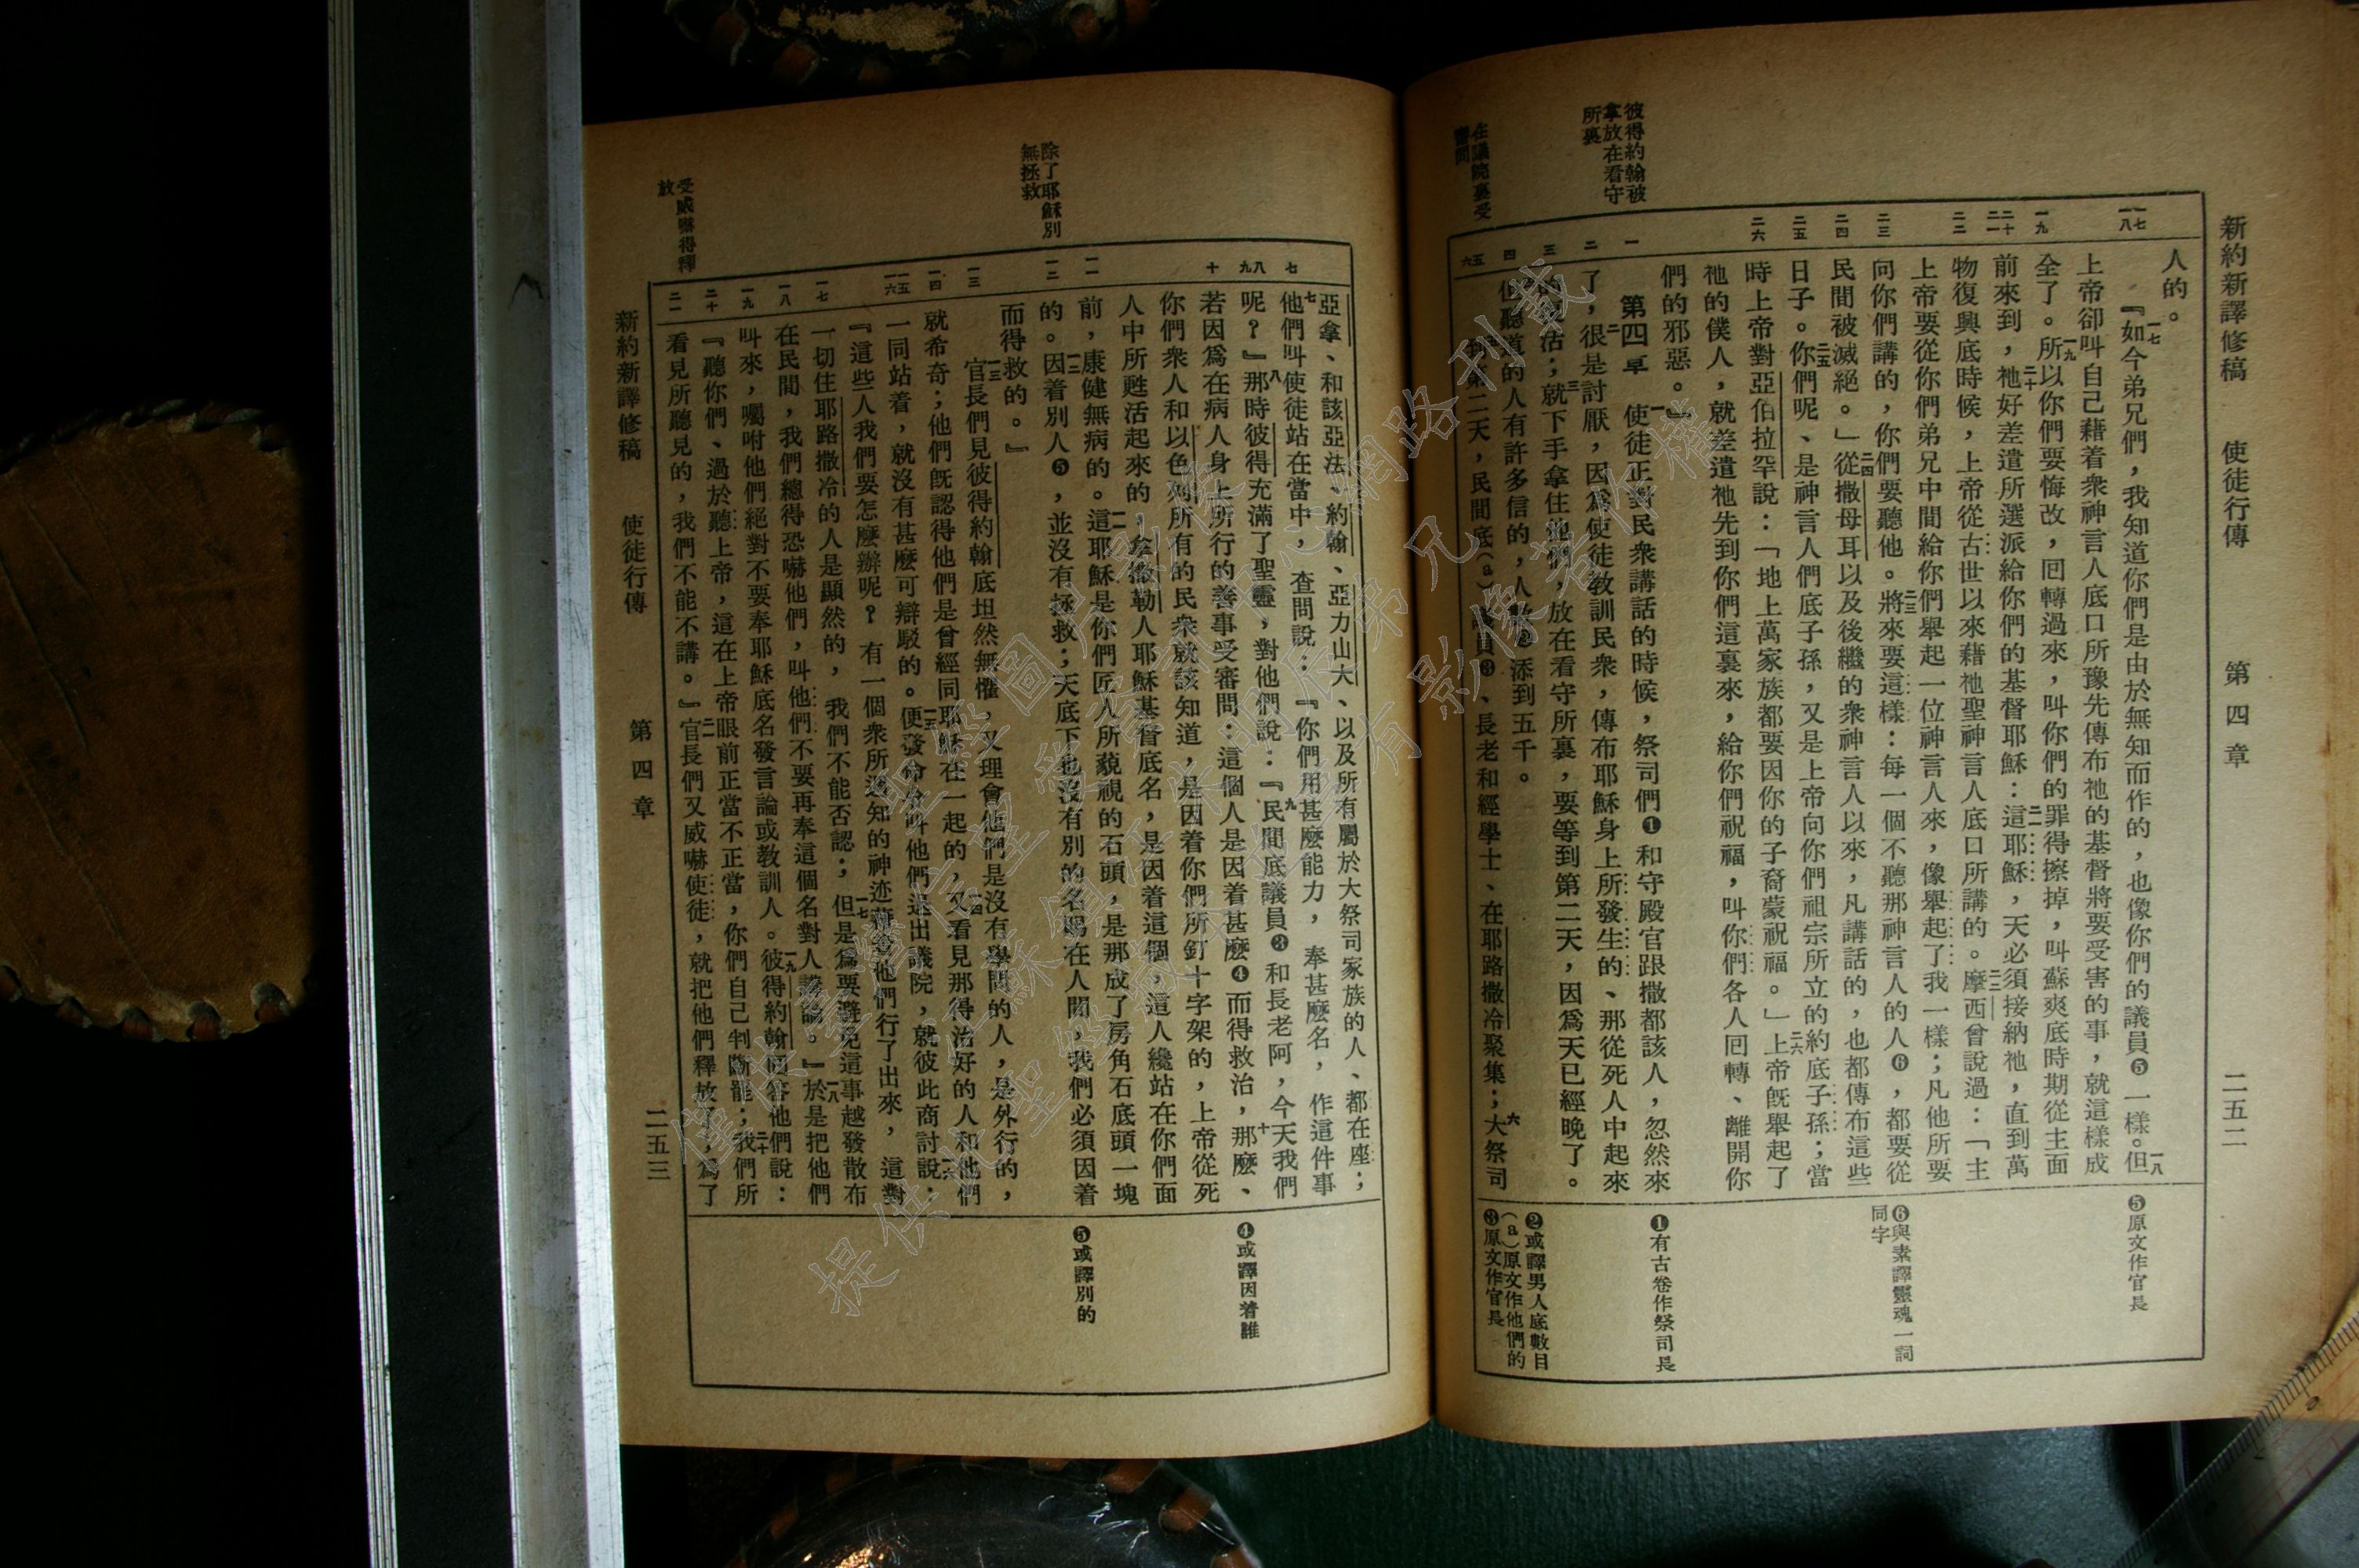 新約新譯修稿　使徒行傳　第四章　二五二
人的。
『如今弟兄們，我知道你們是由於無知而作的，也像你們的議員❺一樣。但
上帝卻叫自己藉着衆神言人底口所豫先傳布祂的基督將要受害的事，就這樣成
全了。所以你們要悔改，回轉過來，叫你們的罪得擦掉，叫蘇爽底時期從主面
前來到，祂好差遣所選派給你們的基督耶穌：這耶穌，天必須接納祂，直到萬
物復興底時候，上帝從古世以來藉祂聖神言人底口所講的。摩西曾說過：「主
上帝要從你們弟兄中間給你們舉起一位神言人來，像舉起了我一樣；凡他所要
向你們講的，你們要聽他。將來要這樣：每一個不聽那神言人的人❻，都要從
民間被滅絕。」從撒母耳以及後繼的衆神言人以來，凡講話的，也都傳布這些
日子。你們呢、是神言人們底子孫，又是上帝向你們祖宗所立的約底子孫；當
時上帝對亞伯拉罕說：「地上萬家族都要因你的子裔蒙祝福。」上帝旣舉起了
祂的僕人，就差遣祂先到你們這裏來，給你們祝福，叫你們各人回轉、離開你
們的邪惡。』
第四章　使徒正對民衆講話的時候，祭司們❶和守殿官跟撒都該人，忽然來
了，很是討厭，因爲使徒教訓民衆，傳布耶穌身上所發生的、那從死人中起來
的復活；就下手拿住他們，放在看守所裏，要等到第二天，因爲天已經晚了。
但聽道的人有許多信的，人數❷添到五千。
第二天，民間底(a)議員❸、長老和經學士、在耶路撒冷聚集；大祭司
彼得約翰被
拿放在看守
所裏
在議院裏受
審問
❺原文作官長
❻與素譯靈魂一詞
同字
❶有古卷作祭司長
❷或譯男人底數目
(a)原文作他們的
❸原文作官長
亞拿、和該亞法、約翰、亞力山大、以及所有屬於大祭司家族的人、都在座；
他們叫使徒站在當中，查問說：『你們用甚麼能力，奉甚麼名，作這件事
呢？』那時彼得充滿了聖靈，對他們說：『民間底議員❸和長老阿，今天我們
若因爲在病人身上所行的善事受審問：這個人是因着甚麼❹而得救治，那麼、
你們衆人和以色列所有的民衆就該知道，是因着你們所釘十字架的，上帝從死
人中所甦活起來的，拿撒勒人耶穌基督底名，是因着這個，這人纔站在你們面
前，康健無病的。這耶穌是你們匠人所藐視的石頭，是那成了房角石底頭一塊
的。因着別人❺，並沒有拯救；天底下也沒有別的名賜在人間，我們必須因着
而得救的。』
官長們見彼得約翰底坦然無懼，又理會他們是沒有學問的人，是外行的，
就希奇；他們旣認得他們是曾經同耶穌在一起的，又看見那得治好的人和他們
一同站着，就沒有甚麼可辯駁的。便發命令叫他們退出議院，就彼此商討說：
『這些人我們要怎麼辦呢？有一個衆所週知的神迹藉着他們行了出來，這對
一切住耶路撒冷的人是顯然的，我們不能否認；但是爲要避免這事越發散布
在民間，我們總得恐嚇他們，叫他們不要再奉這個名對人講論。』於是把他們
叫來，囑咐他們絕對不要奉耶穌底名發言論或教訓人。彼得約翰回答他們說：
『聽你們、過於聽上帝，這在上帝眼前正當不正當，你們自己判斷罷；我們所
看見所聽見的，我們不能不講。』官長們又威嚇使徒，就把他們釋放了，爲了
除了耶穌別
無拯救
受威嚇得釋
放
❹或譯因着誰
❺或譯別的
新約新譯修稿　使徒行傳　第四章　二五三